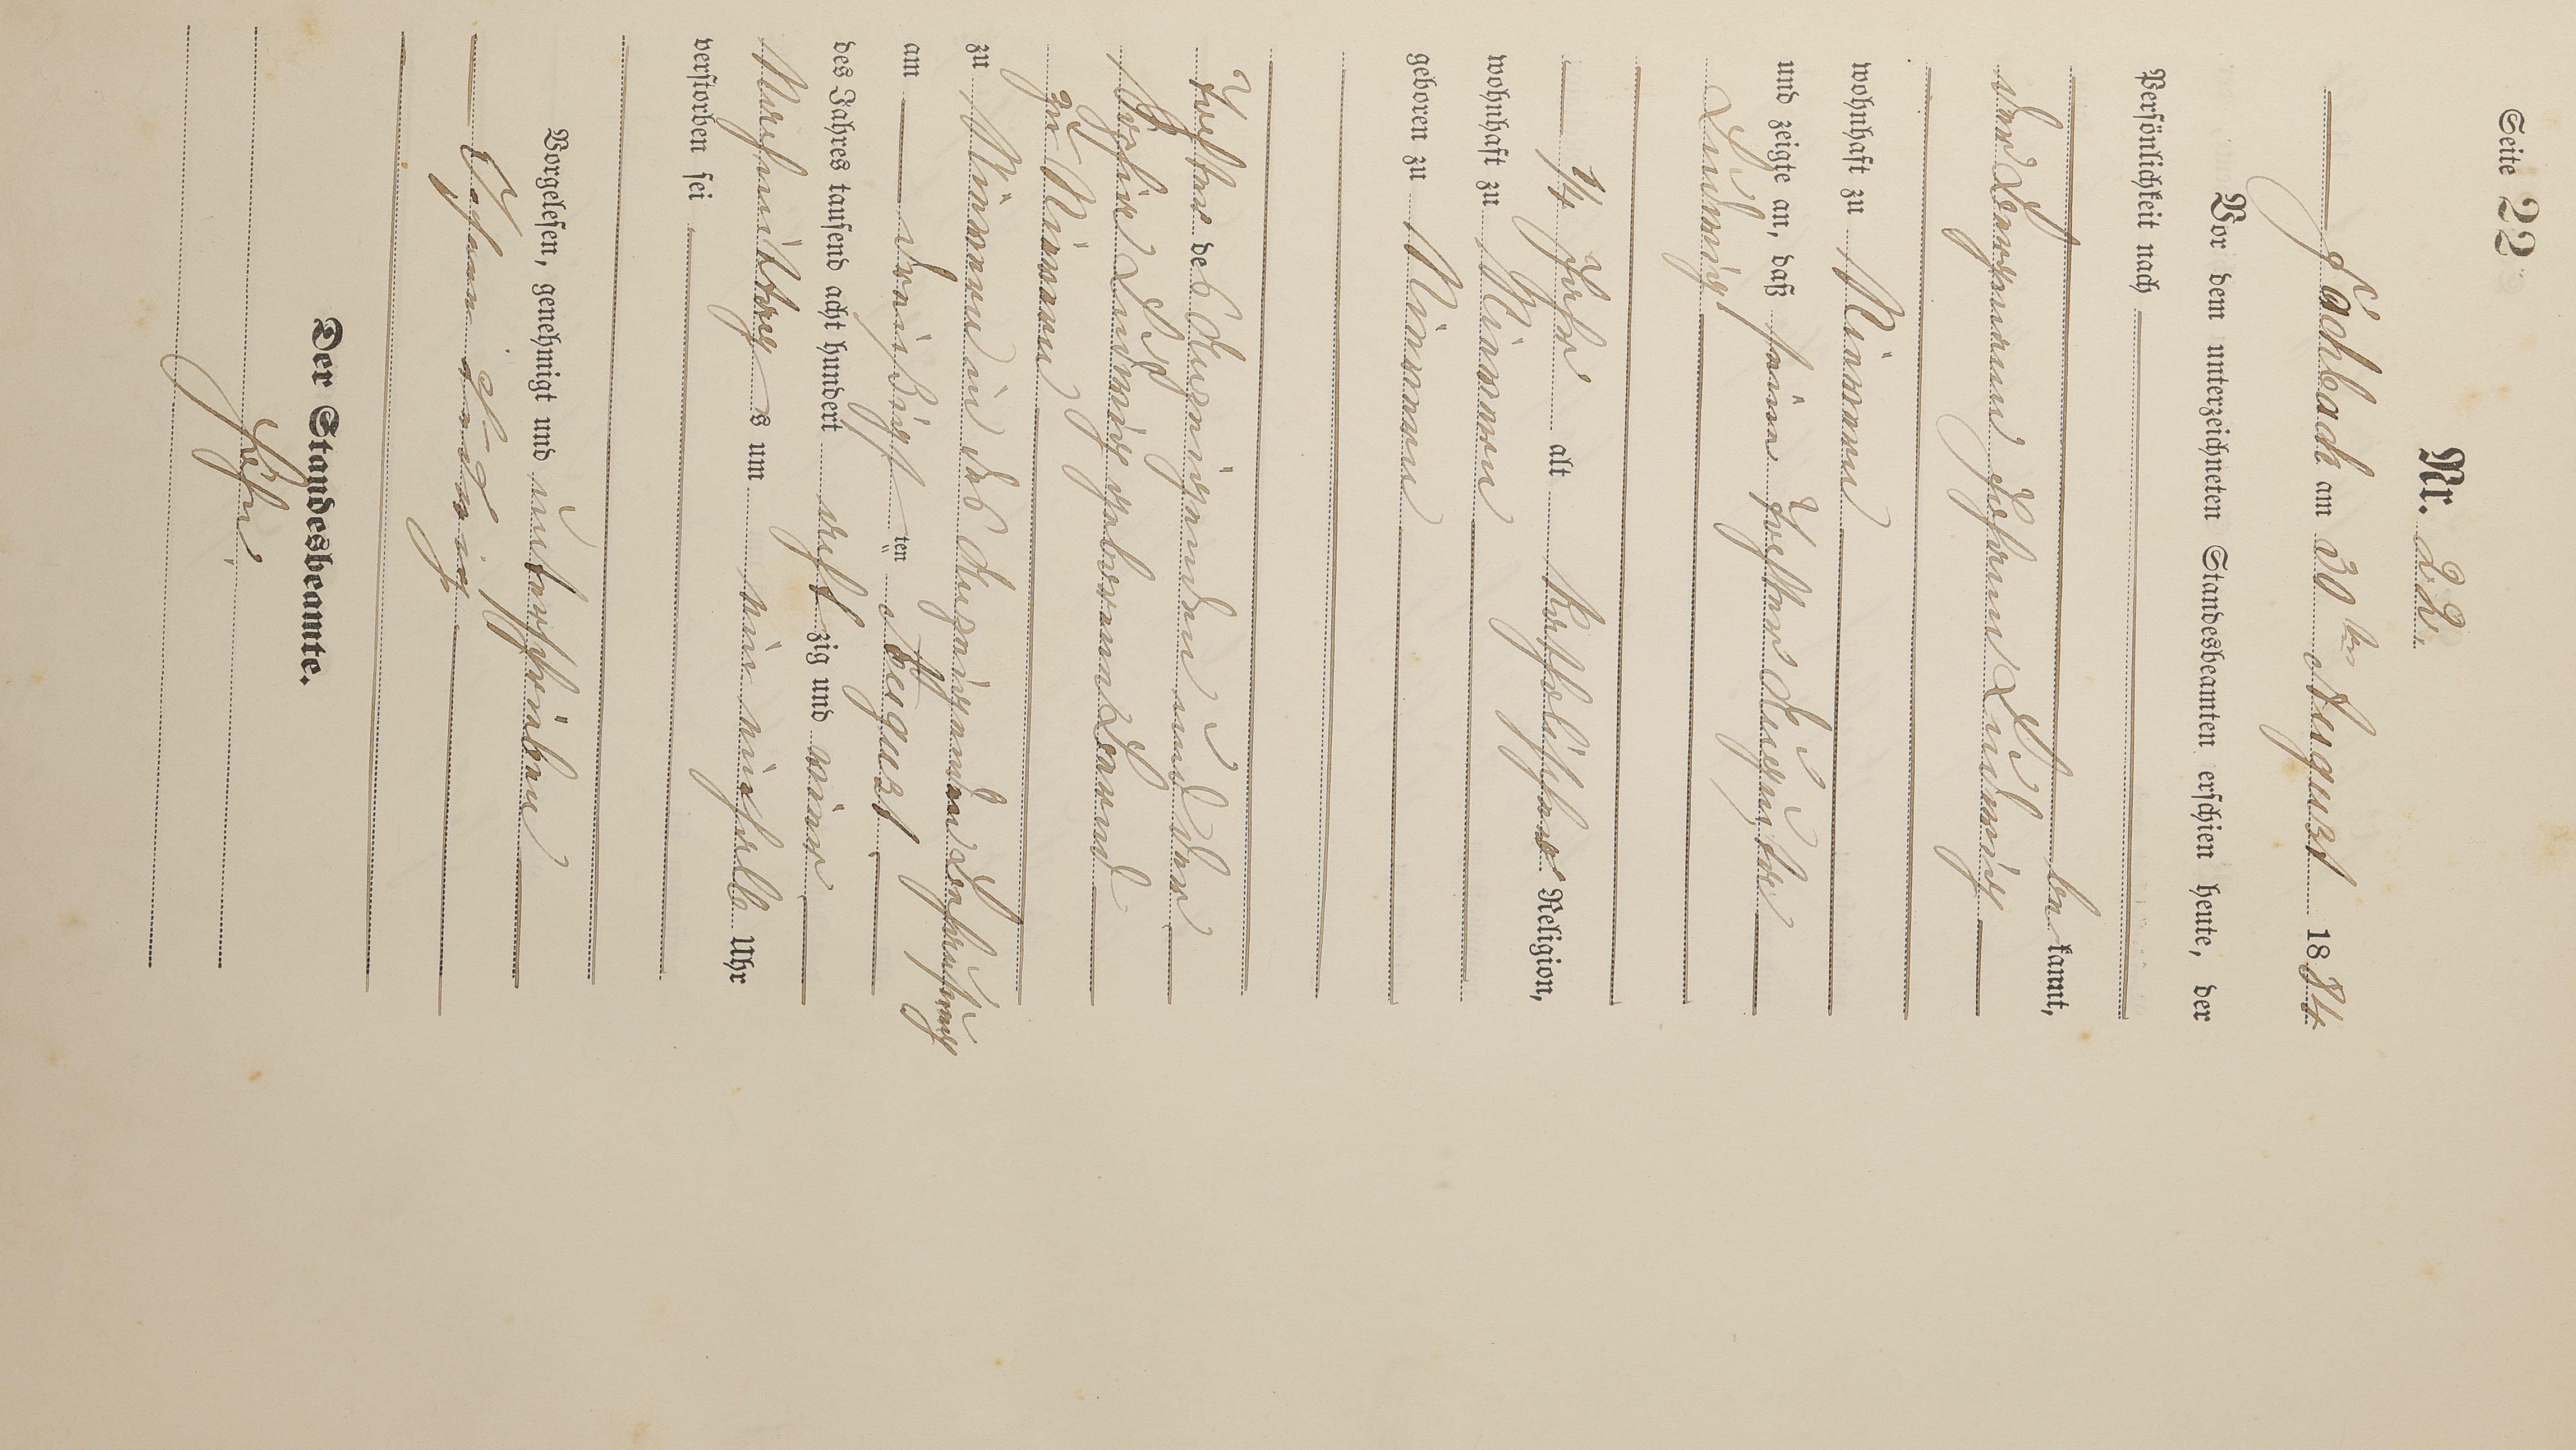 Seite 22
Nr. 22.
Fachbach am 30ten August 1884
Vor dem unterzeichneten Standesbeamten erschien heute, der
Persönlichkeit nach
be kannt,
der Bergmann Johann Ludwig
wohnhaft zu Nievern
und zeigte an, daß seine Tochter Auguste
Ludwig
1/4 Jahr alt katholischer Religion,
wohnhaft zu Nievern
geboren zu Nievern
Tochter des Anzeigenden und der
Sophie Ludwig geborenen
zu Nievern
zu Nievern in des Anzeigenden Behausung
am dreißigsten ten August
des Jahres tausend acht hundert acht zig und vier
Nachmittag s um ein einhalb Uhr
verstorben sei
Vorgelesen, genehmigt und unterschrieben
Johann Ludwig
Der Standesbeamte.